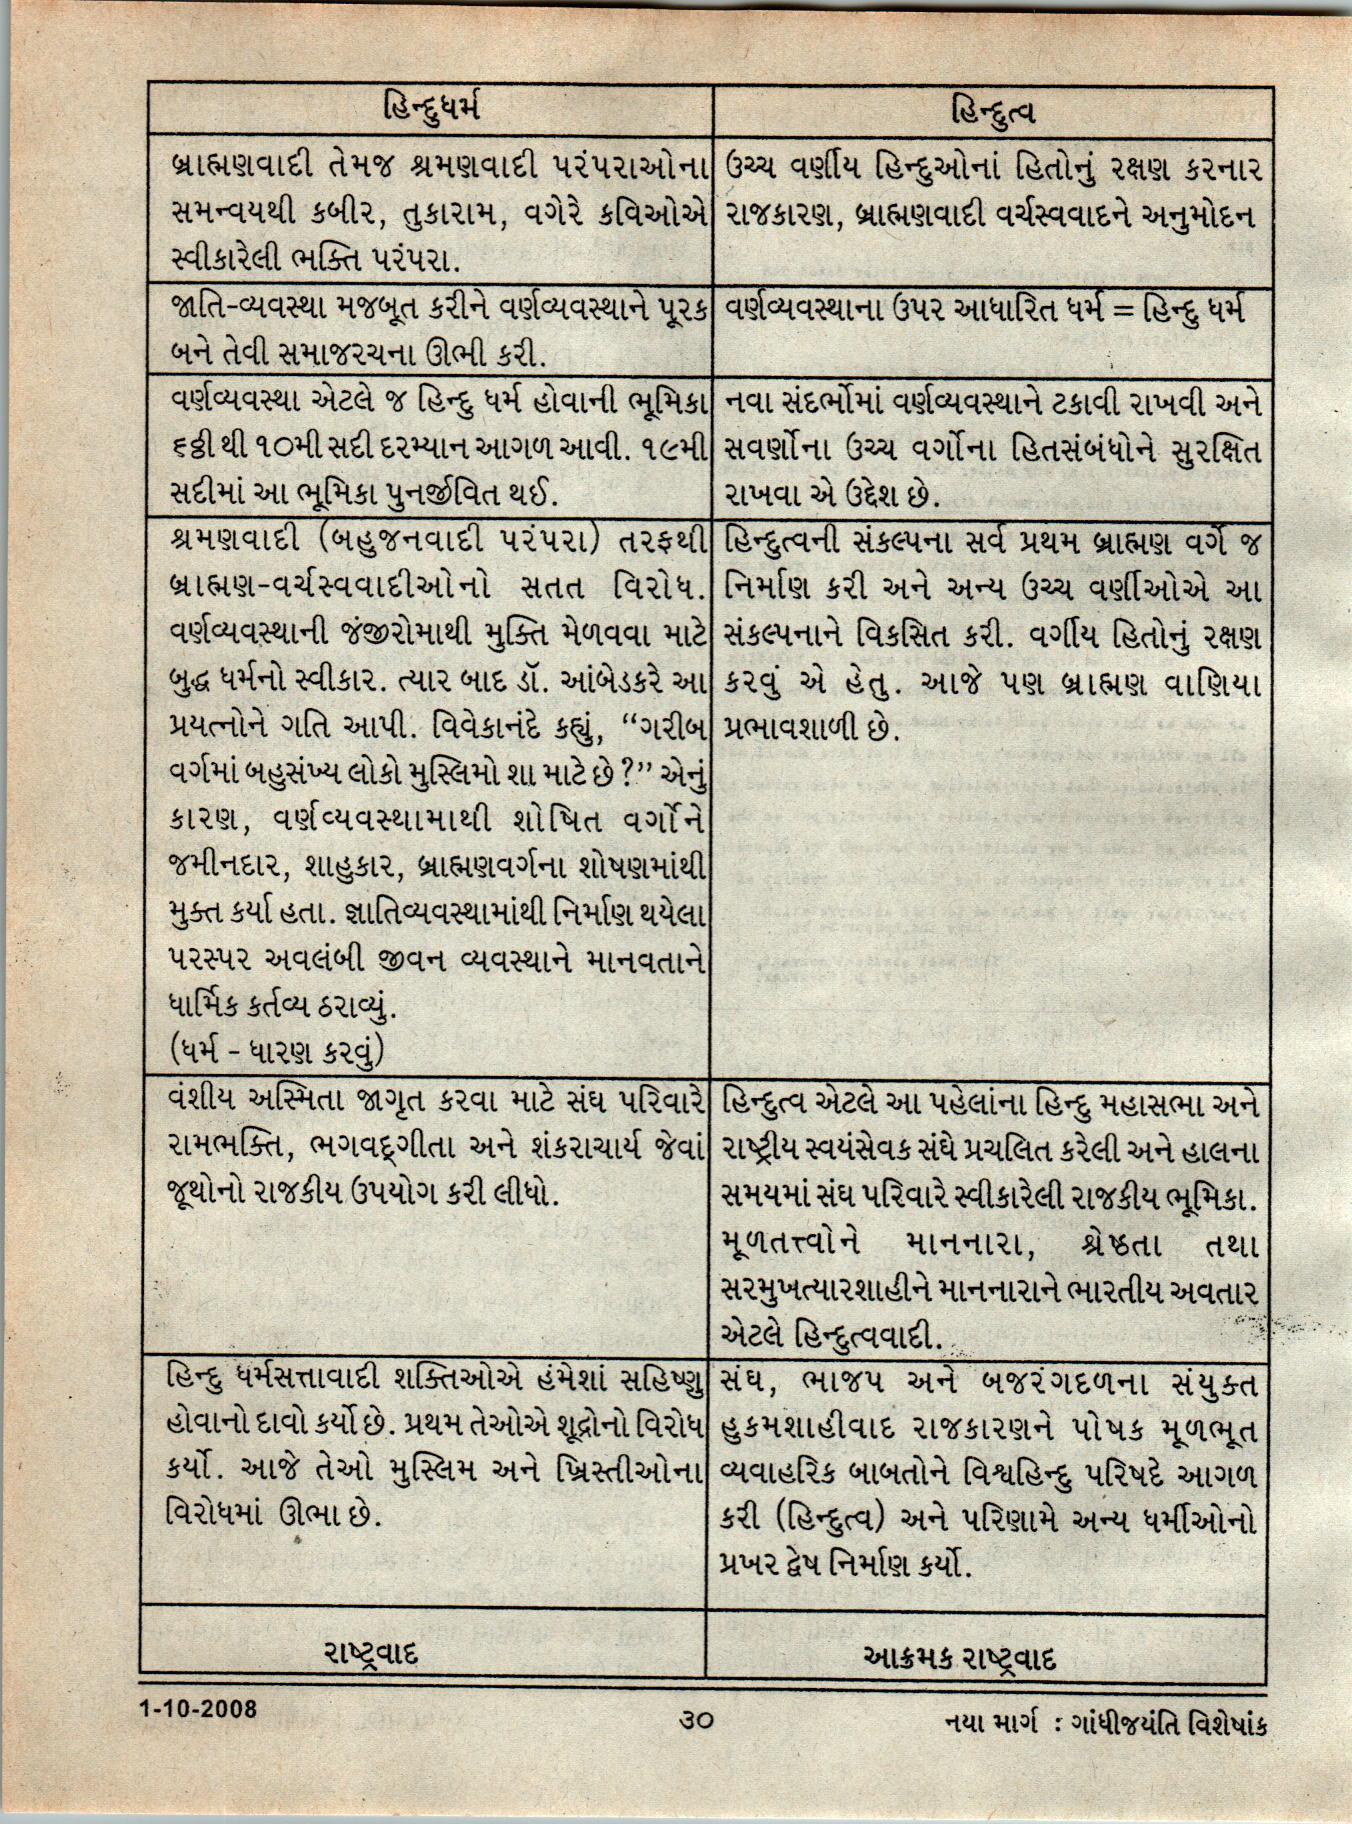 હિન્દુધર્મ
હિન્દુત્વ
બ્રાહ્મણવાદી તેમજ શ્રમણવાદી પરંપરાઓના
સમન્વયથી કબીર, તુકારામ, વગેરે કવિઓએ
સ્વીકારેલી ભક્તિ પરંપરા.
ઉચ્ચ વર્ણીય હિન્દુઓનાં હિતોનું રક્ષણ કરનાર
રાજકારણ, બ્રાહ્મણવાદી વર્ચસ્વવાદને અનુમોદન
જાતિ-વ્યવસ્થા મજબૂત કરીને વર્ણવ્યવસ્થાને પૂરક
બને તેવી સમાજરચના ઊભી કરી.
વર્ણવ્યવસ્થાના ઉપર આધારિત ધર્મ = હિન્દુ ધર્મ
વર્ણવ્યવસ્થા એટલે જ હિન્દુ ધર્મ હોવાની ભૂમિકા
૬ઠ્ઠી થી ૧૦મી સદી દરમ્યાન આગળ આવી. ૧૯મી
સદીમાં આ ભૂમિકા પુનર્જીવિત થઈ.
નવા સંદર્ભોમાં વર્ણવ્યવસ્થાને ટકાવી રાખવી અને
સવર્ણોના ઉચ્ચ વર્ગોના હિતસંબંધોને સુરક્ષિત
રાખવા એ ઉદ્દેશ છે.
શ્રમણવાદી (બહુજનવાદી પરંપરા) તરફથી
બ્રાહ્મણ-વર્ચસ્વવાદીઓનો સતત વિરોધ.
વર્ણવ્યવસ્થાની જંજીરોમાથી મુક્તિ મેળવવા માટે
બુદ્ધ ધર્મનો સ્વીકાર. ત્યાર બાદ ડૉ. આંબેડકરે આ
પ્રયત્નોને ગતિ આપી. વિવેકાનંદે કહ્યું, “ગરીબ
વર્ગમાં બહુસંખ્ય લોકો મુસ્લિમો શા માટે છે?” એનું
કારણ, વર્ણવ્યવસ્થામાથી શોષિત વર્ગોને
જમીનદાર, શાહુકાર, બ્રાહ્મણવર્ગના શોષણમાંથી
મુક્ત કર્યા હતા. જ્ઞાતિવ્યવસ્થામાંથી નિર્માણ થયેલા
પરસ્પર અવલંબી જીવન વ્યવસ્થાને માનવતાને
ધાર્મિક કર્તવ્ય ઠરાવ્યું.
(ધર્મ - ધારણ કરવું)
હિન્દુત્વની સંકલ્પના સર્વ પ્રથમ બ્રાહ્મણ વર્ગે જ
નિર્માણ કરી અને અન્ય ઉચ્ચ વર્ણીઓએ આ
સંકલ્પનાને વિકસિત કરી. વર્ગીય હિતોનું રક્ષણ
કરવું એ હેતુ. આજે પણ બ્રાહ્મણ વાણિયા
પ્રભાવશાળી છે.
વંશીય અસ્મિતા જાગૃત કરવા માટે સંઘ પરિવારે
રામભક્તિ, ભગવદ્ગીતા અને શંકરાચાર્ય જેવાં
જૂથોનો રાજકીય ઉપયોગ કરી લીધો.
હિન્દુત્વ એટલે આ પહેલાંના હિન્દુ મહાસભા અને
રાષ્ટ્રીય સ્વયંસેવક સંઘે પ્રચલિત કરેલી અને હાલના
સમયમાં સંઘ પરિવારે સ્વીકારેલી રાજકીય ભૂમિકા.
મૂળતત્ત્વોને માનનારા, શ્રેષ્ઠતા તથા
સરમુખત્યારશાહીને માનનારાને ભારતીય અવતાર
એટલે હિન્દુત્વવાદી.
હિન્દુ ધર્મસત્તાવાદી શક્તિઓએ હંમેશાં સહિષ્ણુ
હોવાનો દાવો કર્યો છે. પ્રથમ તેઓએ શૂદ્રોનો વિરોધ
કર્યો. આજે તેઓ મુસ્લિમ અને ખ્રિસ્તીઓના
વિરોધમાં ઊભા છે.
સંઘ, ભાજપ અને બજરંગદળના સંયુક્ત
હુકમશાહીવાદ રાજકારણને પોષક મૂળભૂત
વ્યવાહરિક બાબતોને વિશ્વહિન્દુ પરિષદે આગળ
કરી (હિન્દુત્વ) અને પરિણામે અન્ય ધર્મીઓનો
પ્રખર દ્વેષ નિર્માણ કર્યો.
રાષ્ટ્રવાદ
આક્રમક રાષ્ટ્રવાદ
1-10-2008
૩૦
નયા માર્ગ : ગાંધીજયંતિ વિશેષાંક